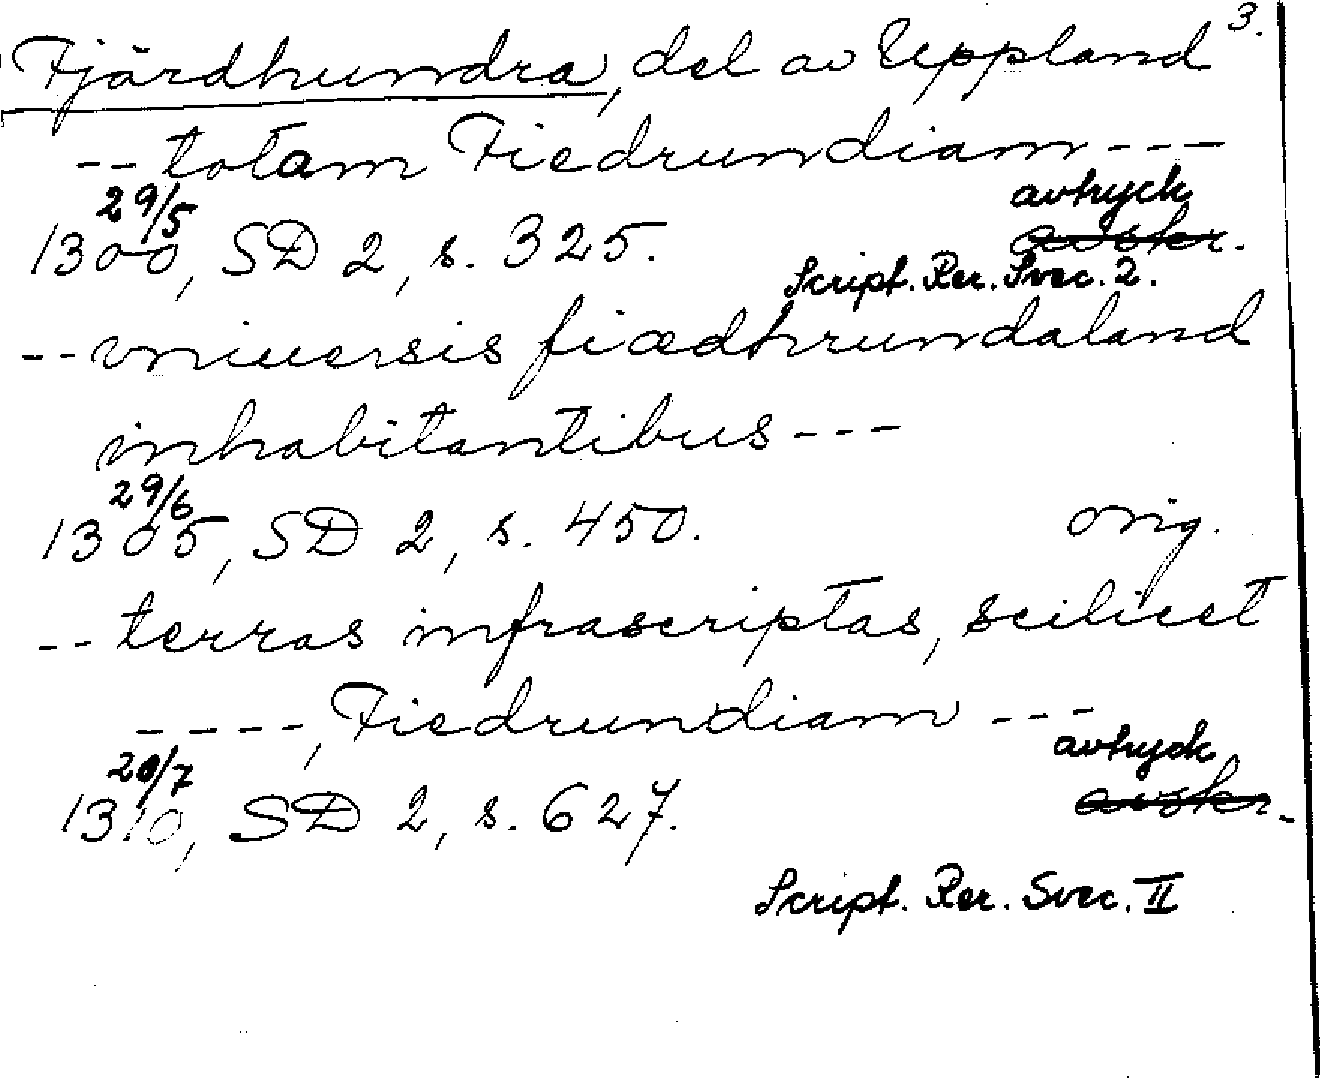 3.
Fjärdhundra, del av Uppland
-- totam Fiedrundiam ---
29/5 avtryck
1300, SD 2, s. 325. avskr.
Script. Rer. Svec. 2.
-- vniuersis fiædhrundaland
inhabitantibus ---
29/6
1305, SD 2, s. 450. orig.
-- terras infrascriptas, scilicet
----, Fiedrundiam ---
20/7 avtryck
1310, SD 2, s. 627. avskr.
Script. Rer. Svec. II